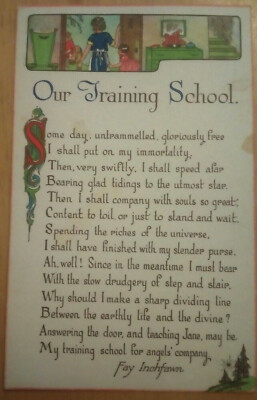 Our Training School.
Some day, untrammelled, gloriously free
I shall put on my immortality,
Then, very swiftly, I shall speed afar
Bearing glad tidings to the utmost star.
Then I shall company with souls so great;
Content to toil, or just to stand and wait.
Spending the riches of the universe,
I shall have finished with my slender purse.
Ah, well! Since in the meantime I must bear
With the slow drudgery of step and stair,
Why should I make a sharp dividing line
Between the earthly life and the divine?
Answering the door, and teaching Jane, may be,
My training school for angels' company.
Fay Inchfawn.